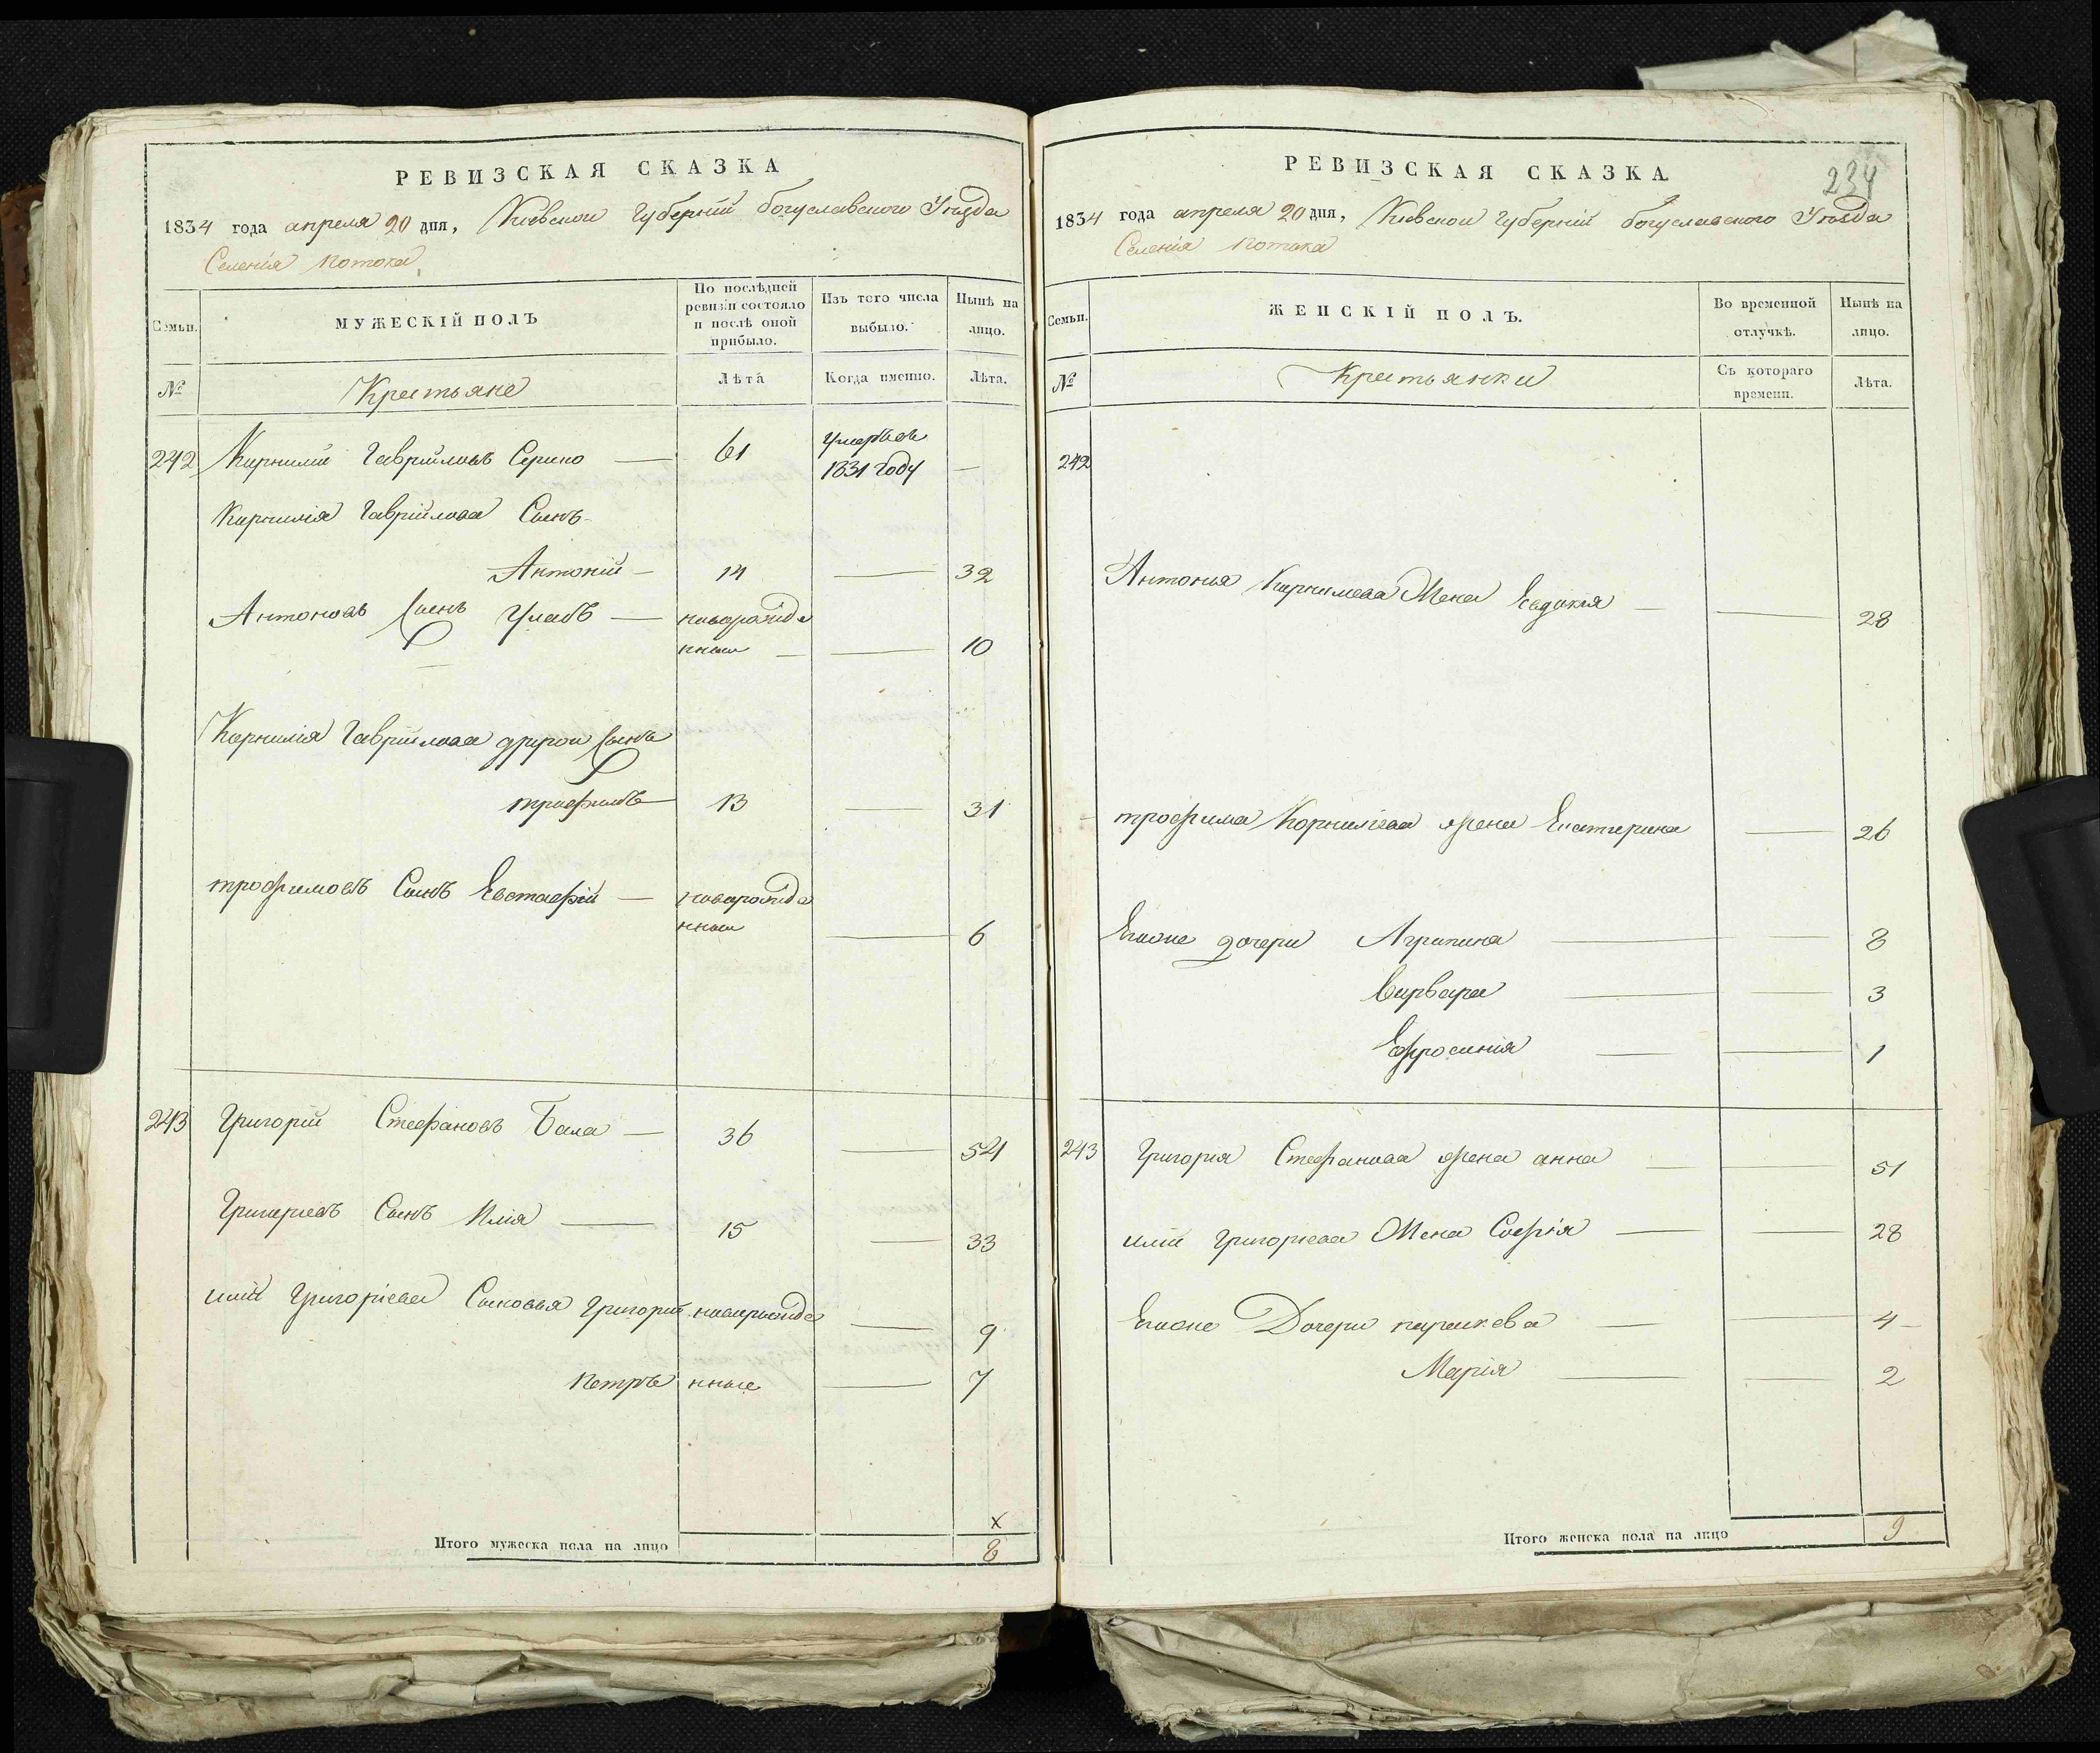 РЕВИЗСКАЯ СКАЗКА
1834 года апреля 20 дня, Киевской Губерніи богуславского Уѣзда
Селенія Потока
Семьи.
МУЖЕСКІЙ ПОЛЪ
По послѣдней ревизіи состояло и послѣ оной прибыло.
Изъ того числа выбыло.
Нынѣ на лицо.
№
Крестьяне
Лѣта
Когда именно.
Лѣта.
242 Корнилій Гаврйловъ Серико 61 Умербъ 1831 году
Корнилія Гаврійлова Сынъ
Антоній 14 32
Антоновъ Сынъ Улабъ новорожде
нный 10
Корнилія Гаврійлова другой Сынъ
трофимъ 13 31
трофимовъ Сынъ Евстафій новорожде
нный 6
243 Григорій Стефановъ Бала 36 54
Григориевъ Сынъ Илія 15 33
илій Григоріева Сыновья Григорий новорожде 9
Петръ нные 7
х
Итого мужеска пола на лицо 8
РЕВИЗСКАЯ СКАЗКА
234
1834 года апреля 20 дня, Киевской Губерніи богуславского Уѣзда
Селенія Потока
Семьи.
ЖЕНСКІЙ ПОЛЪ.
Во временной отлучкѣ.
Нынѣ на лицо.
№
Крестьянки
Съ котораго времени.
Лѣта.
242
Антония Корнилева Жена Евдокия 28
трофима Корнилієва жена Екатерина 26
Егионе дочери Агрипина 8
Варвара 3
Ефросинія 1
243 Григория Стефанова жена анна 51
илии Григориева Жена Софія 28
Егионе Дочери параскева 4
Марія 2
Итого женска пола на лицо 9